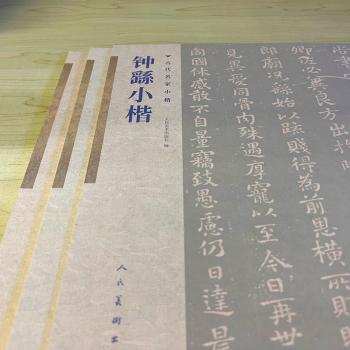 古代名家小楷
钟繇小楷
人民美术出版社 编
人民美術出
良方出於
郎廟況繇始以疏賤得為前恩橫所
見異愛同骨肉殊遇厚寵以至今日再世
同國休感敢不自量竊致愚慮仍日達